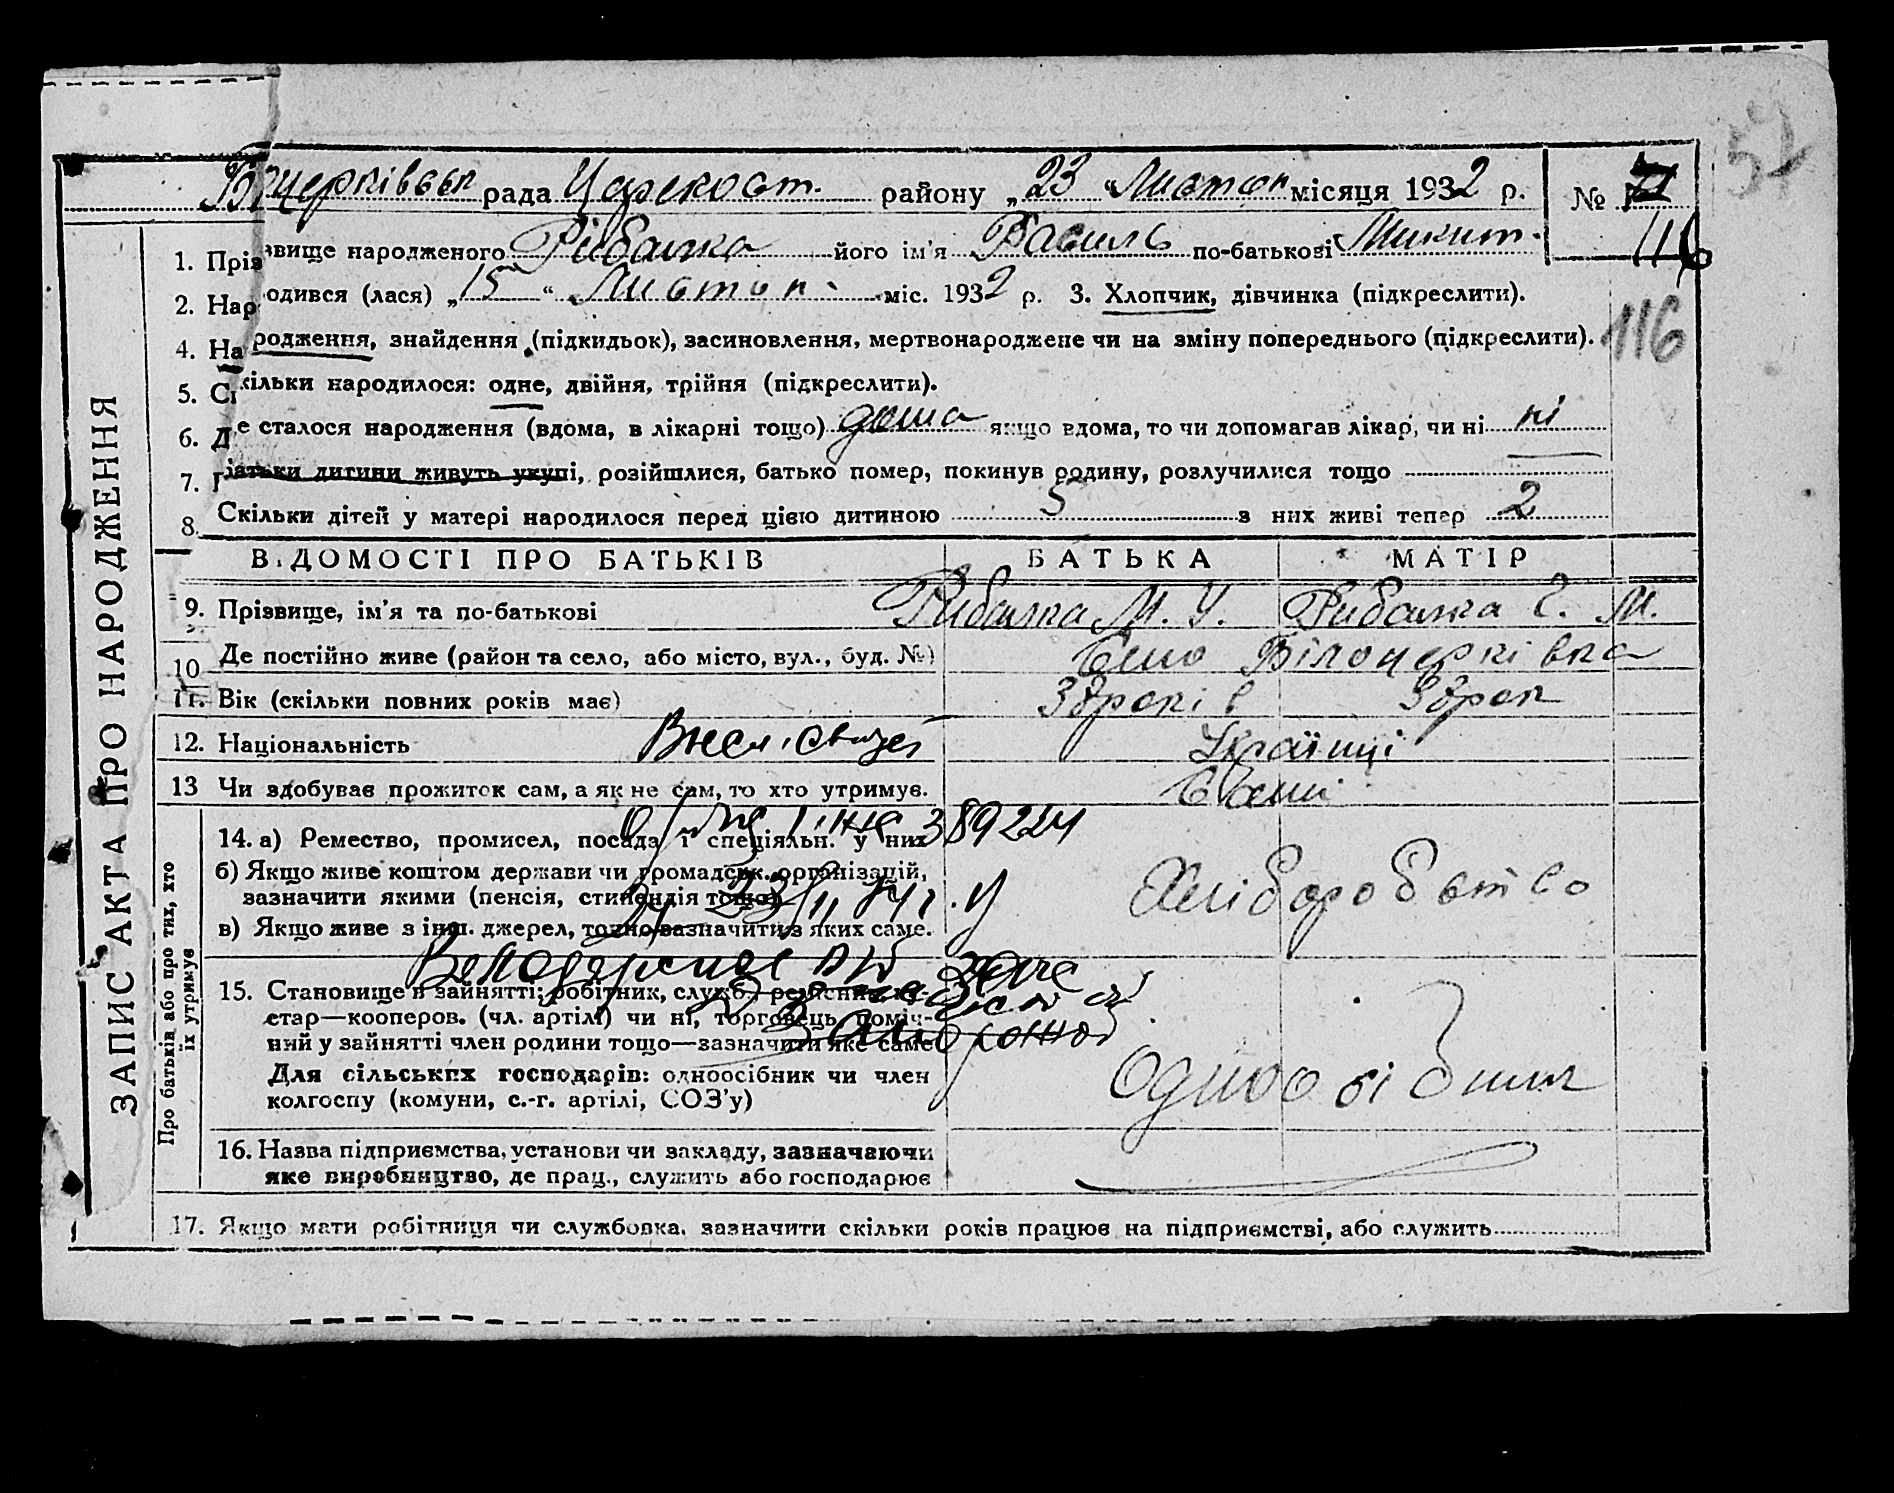 Б.церківськ рада Царекост. району „23“ Листоп місяця 1932 р. №
57
116
1. Прізвище народженого Рибалка його ім'я Василь по-батькові Микит.
2. Народився (лася) „15“ Листоп. міс. 1932 р. 3. Хлопчик, дівчинка (підкреслити).
116
4. Народження, знайдення (підкидьок), засиновлення, мертвонароджене чи на зміну попереднього (підкреслити).
5. Скільки народилося: одне, двійня, трійня (підкреслити).
6. Де сталося народження (вдома, в лікарні тощо) дома якщо вдома, то чи допомагав лікар, чи ні ні
7. Батьки дитини живуть укупі, розійшлися, батько помер, покинув родину, розлучилися тощо
8. Скільки дітей у матері народилося перед цією дитиною 5 з них живі тепер 2
ВІДОМОСТІ ПРО БАТЬКІВ БАТЬКА МАТІР
9. Прізвище, ім'я та по-батькові Рибалка М. У. Рибалка Є. М.
10 Де постійно живе (район та село, або місто, вул., буд. №) Село Білоцерківка
11. Вік (скільки повних років має) 37років 37рок
12. Національність Українці
13 Чи здобуває прожиток сам, а як не сам, то хто утримує.
389224
14. а) Ремество, промисел, посада і спеціяльн. у них
б) Якщо живе коштом держави чи громадськ. організацій,
зазначити якими (пенсія, стипендія тощо)
в) Якщо живе з інш. джерел, точно зазначити з яких саме.
Хліборобство
15. Становище в зайнятті: робітник, служб., ремісник, ку-
стар—кооперов. (чл. артілі) чи ні, торговець, поміч-
ний у зайнятті член родини тощо—зазначити яке саме
Для сільських господарів: одноосібник чи член
колгоспу (комуни, с.-г. артілі, СОЗ'у)
Одноосібник
16. Назва підприємства, установи чи закладу, зазначаючи
яке виробництво, де прац., служить або господарює
17. Якщо мати робітниця чи службовка, зазначити скільки років працює на підприємстві, або служить
ЗАПИС АКТА ПРО НАРОДЖЕННЯ
Про батьків або про тих, хто
їх утримує